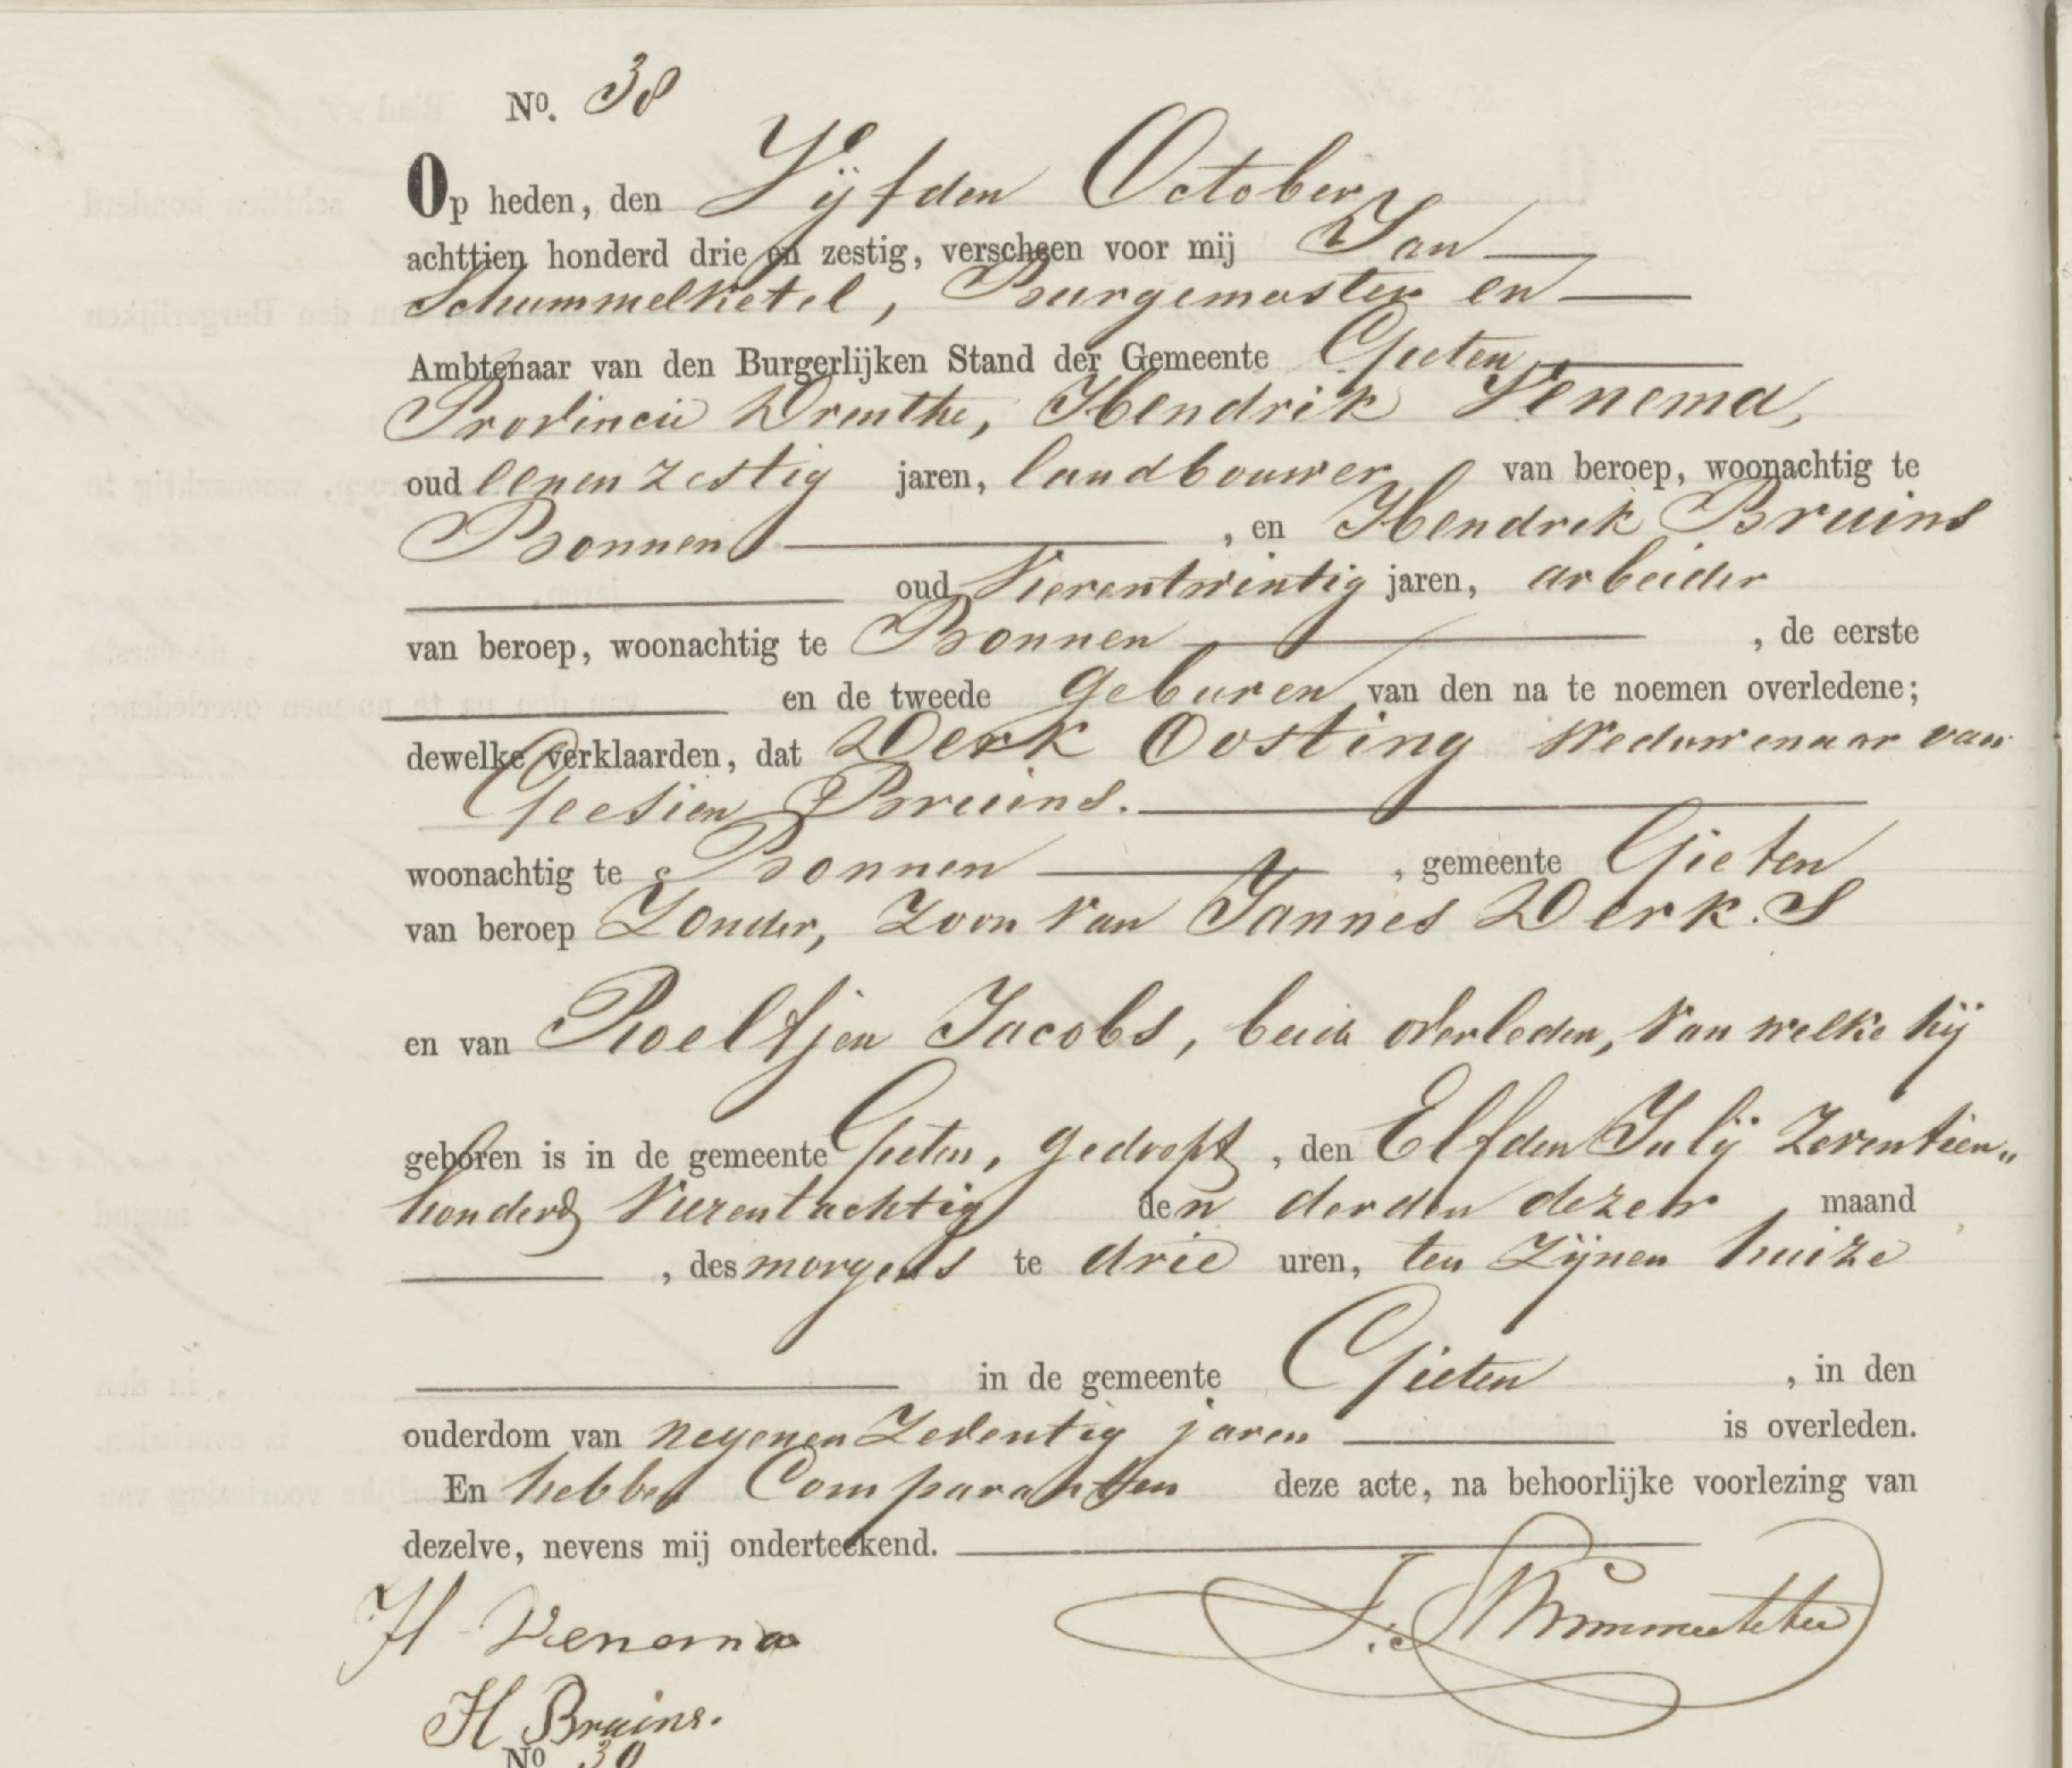 No. 38
Op heden, den Vijfden October
achttien honderd drie en zestig, verscheen voor mij Jan
Schummelketel, Burgemester en
Ambtenaar van den Burgerlijken Stand der Gemeente Gieten,
Provincie Drenthe, Hendrik Venema,
oud eenenzestig jaren, landbouwer van beroep, woonachtig te
Bonnen, en Hendrik Bruins
oud Vierentwintig jaren, arbeider
van beroep, woonachtig te Bonnen, de eerste
en de tweede geburen van den na te noemen overledene;
dewelke verklaarden, dat Derk Oosting Weduwenaar van
Geesien Bruins.
woonachtig te Bonnen, gemeente Gieten
van beroep Zonder, Zoon van Jannes Derk.s
en van Roeltjen Jacobs, beide overleden, van welke hij
geboren is in de gemeente Gieten, gedoopt, den Elfden Julij Zeventien„
honderd Vierentachtig den derden dezer maand
, des morgens te drie uren, ten Zijnen huize
in de gemeente Gieten, in den
ouderdom van negenenZeventig jaren is overleden.
En hebben Comparanten deze acte, na behoorlijke voorlezing van
dezelve, nevens mij onderteekend.
H Venema J. Schummelketel
H Bruins.
No 39